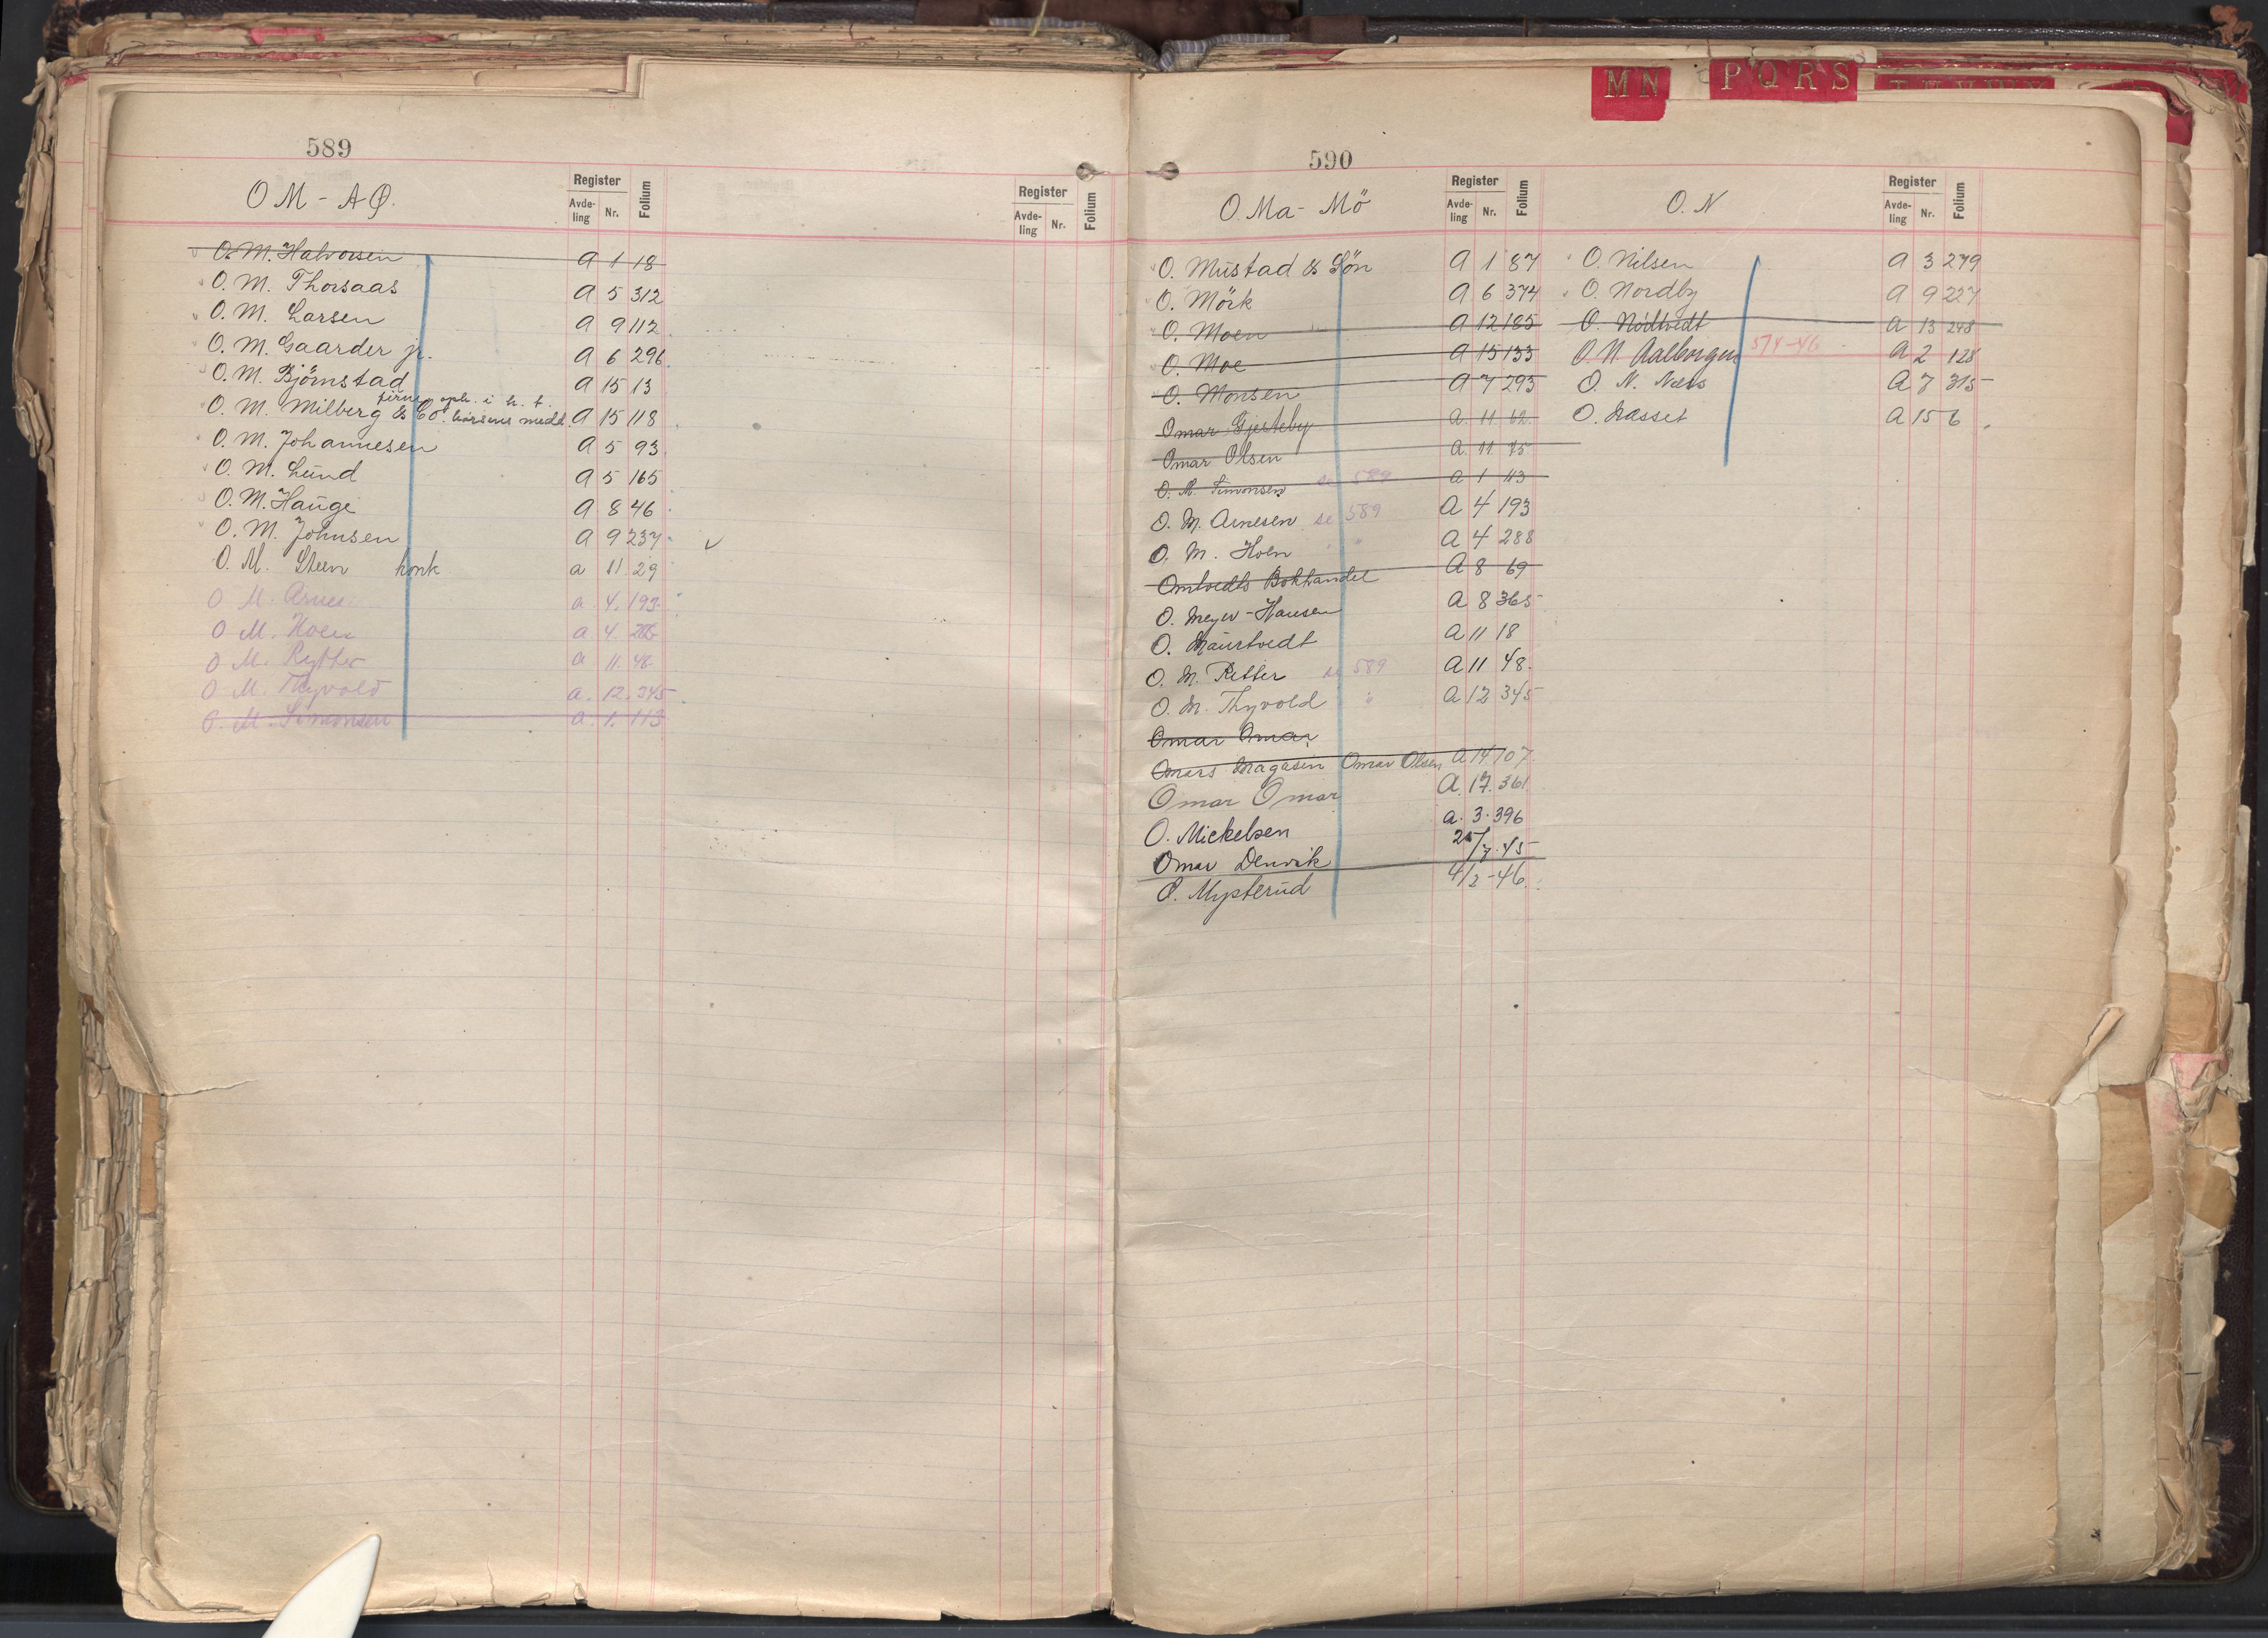 589
O M - A Ø.
Register
Avde-
ling
Nr.
Folium
Register
Avde-
ling
Nr.
Folium
O. M. Halvorsen A 1 18
O. M. Thorsaas A 5 312
O. M. Larsen A 9 112
O. M. Gaarder jr. A 6 296
O. M. Björnstad A 15 13
O. M. Milberg & Co. A 15 118
O. M. Johannesen A 5 93
O. M. Lund A 5 165
O. M. Hauge A 8 46
O. M. Johnsen A 9 237
O. M. Steen konk a 11 29
O M. Arnes a. 4. 193
O M. Hoen a 4.
O M. Rytter a 11. 48
O M. Thyvold a. 12. 345
O. M. Simonsen a. 1. 113
MN PQRS
590
O. Ma - Mö
Register
Avde-
ling
Nr.
Folium
O. Mustad & Sön A 1 87
O. Mörk A 6 374
O. Moen A 12 185
O. Moe A 15 133
O. Monsen A 7 293
Omar Gjesteby a. 11 62
Omar Olsen a. 11 75
O. M. Simonsen se 589 a 1 113
O. M. Arnesen se 589 A 4 193
O. M. Hoen " " A 4 288
Omtvedts Bokhandel A 8 69
O. Meyer-Hansen A 8 365
O. Maurtvedt A 11 18
O. M. Retter se 589 A 11 48
O. M. Thyvold " A 12 345
Omar Omar
Omars Magasin Omar Olsen A 14 107
Omar Omar A. 17. 361
O. Mickelsen a. 3. 396
Omar Denvik 25/7. 45
O. Mysterud 4/2-46
O. N
Register
Avde-
ling
Nr.
Folium
O. Nilsen A 3 279
O. Nordby A 9 227
O. Nödtvedt A 13 248
O N Aalborgen 5/4-46 A 2 128
O. N. Næss A 7 315
O. Næsset A 15 6